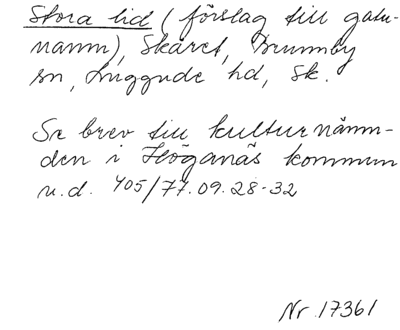 Stora lid (förslag till gatu-
namn), Skäret, Brunnby
sn, Luggude hd, Sk.
Se brev till kulturnämn-
den i Höganäs kommun
u.d. 405/77.09.28-32
Nr 17361